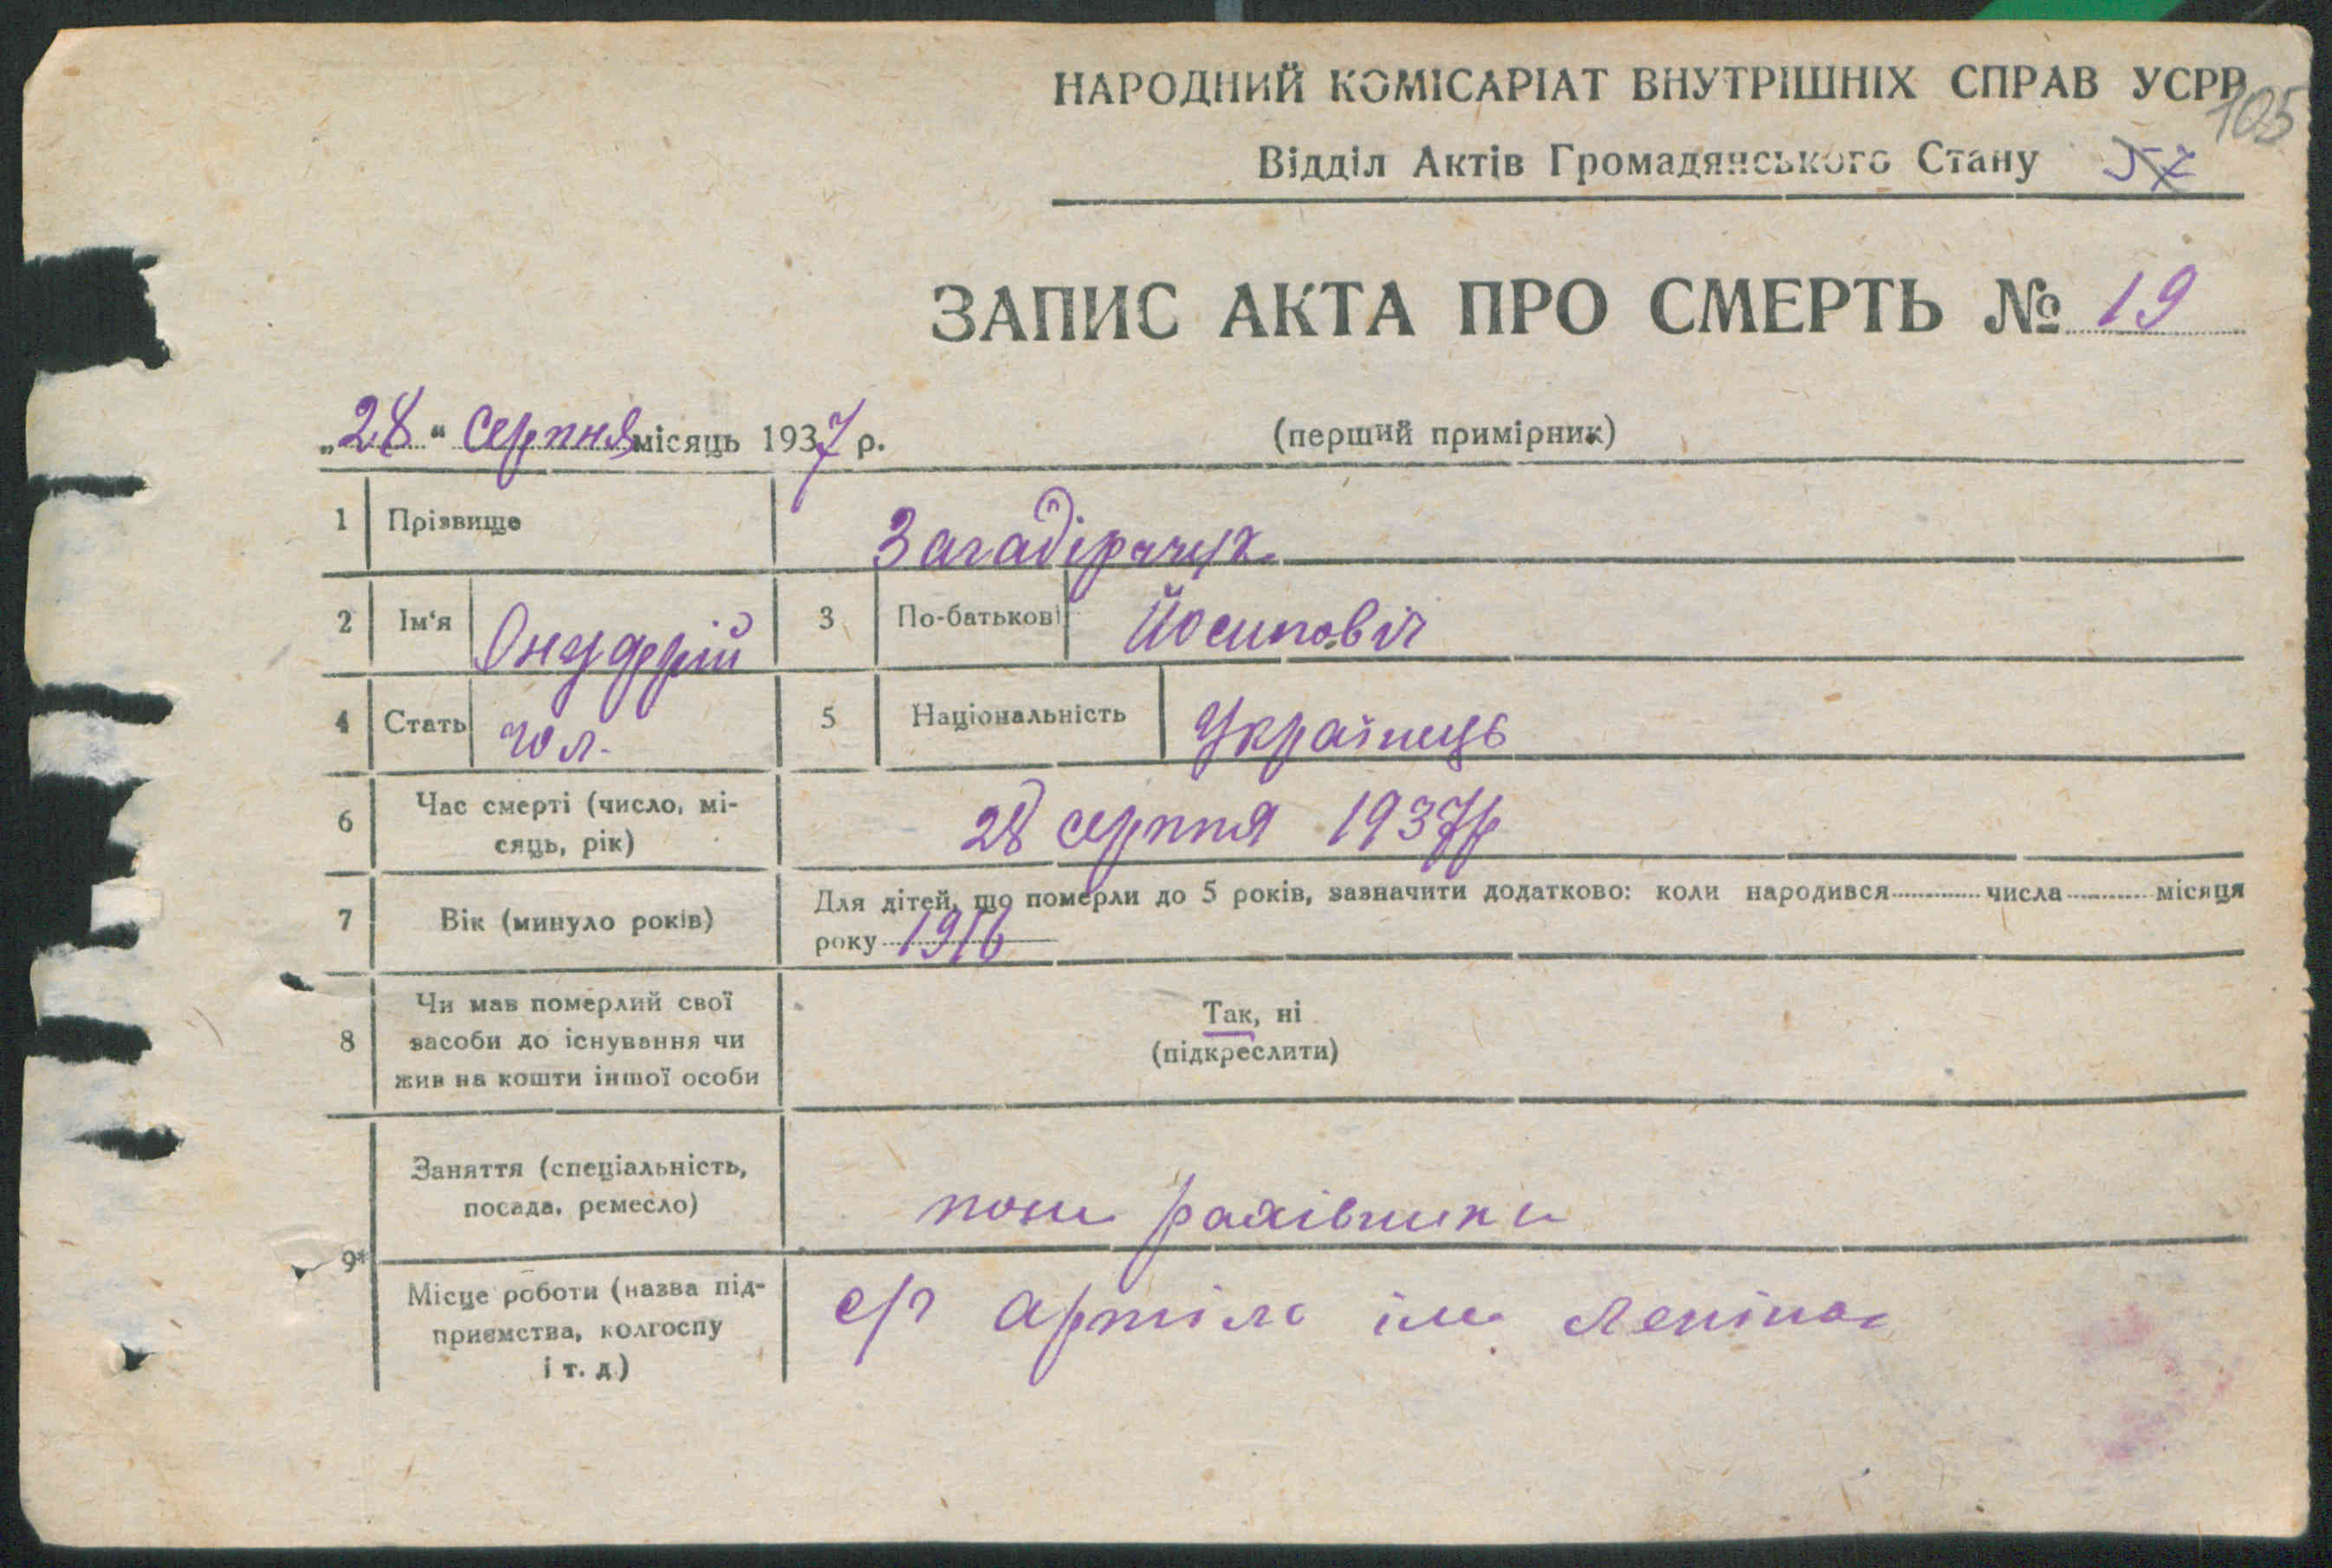 НАРОДНИЙ КОМІСАРІАТ ВНУТРІШНІХ СПРАВ УСРР
105
Відділ Актів Громадянського Стану 57
ЗАПИС АКТА ПРО СМЕРТЬ № 19
„28“ серпня місяць 1937 р. (перший примірник)
1 Прізвище Загадірчук
2 Ім‘я Онуфрій 3 По-батькові Йосиповіч
4 Стать чол. 5 Національність Українець
6 Час смерті (число, мі-
сяць, рік)
28 серпня 1937р
7 Вік (минуло років) Для дітей, що померли до 5 років, зазначити додатково: коли народився числа місяця
року 1916
8 Чи мав померлий свої
засоби до існування чи
жив на кошти іншої особи
Так, ні
(підкреслити)
9*
Заняття (спеціальність,
посада, ремесло)
пом рахівника
Місце роботи (назва під-
приємства, колгоспу
і т. д.)
с/г артіль ім Леніна